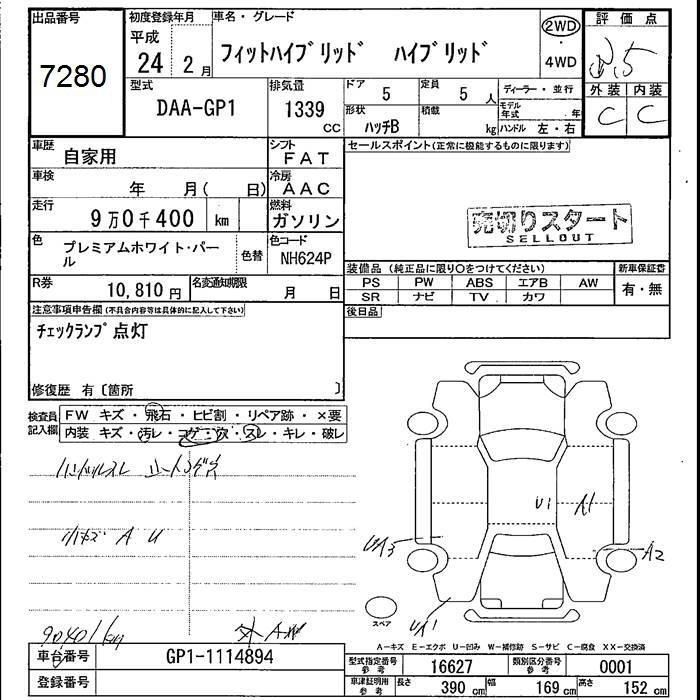 出品番号
7280
初度登録年月
平成
24 2 月
車名・グレード
フィットハイブリッド ハイブリッド
2WD
・
4WD
評価点
3.5
外装 内装
C C
型式
DAA-GP1
排気量
1339
CC
ドア 5
定員 5 人
形状
ハッチB
積載
kg
ディーラー・並行
モデル年式 年
ハンドル 左・右
車歴 自家用
シフト
FAT
車検 年 月( 日)
冷房
AAC
走行
9万0千400 km
燃料
ガソリン
色 プレミアムホワイト・パール
色替
色コード
NH624P
R券 10,810 円
名変通知期限
月 日
注意事項申告欄(不具合内容等は具体的に記入して下さい)
チェックランプ点灯
修復歴 有〔箇所 〕
セールスポイント(正常に機能するものに限ります)
売切りスタート
SELLOUT
装備品(純正品に限り○をつけてください)
PS PW ABS エアB AW
SR ナビ TV カワ
新車保証書
有・無
後日品
検査員記入欄
FW キズ・飛石・ヒビ割・リペア跡・×要
内装 キズ・汚レ・コゲ・穴・スレ・キレ・破レ
ハンドルスレ シートコゲ穴
小キズ A U
90401km
U1 A1
UA3
A2
UA1
スペア
A-キズ E-エクボ U-凹み W-補修跡 S-サビ C-腐食 XX-交換済
車台番号 GP1-1114894
登録番号
型式指定番号
参考
16627
類別区分番号
参考
0001
車津証明用
参考
長さ 390 cm
幅 169 cm
高さ 152 cm